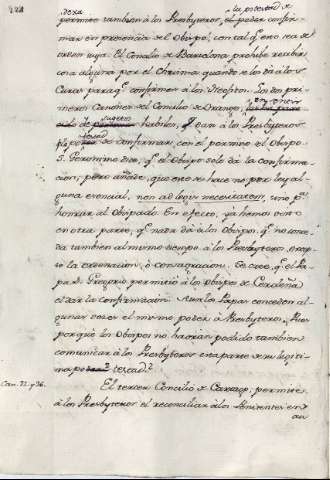 la potestad de
permite tambien à los Presbyteros, el poder confir-
mar en presencia del Obispo, con tal q.e no sea
orden suya. El Concilio de Barcelona prohibe recibir
cosa alguna por el Chrisma, quando se los dà à los
Curas para q.e confirmen à los Neofitos. Los dos pri-
meros Canones del Concilio de Orange,
habiles, q.e dan à los Presbyteros
de confirmar, con el permiso el Obispo.
S. Geronimo dice, q.e el Obispo solo dà la confirma-
cion; pero añade, que esto se hace no por ley al-
guna esencial, non ad legis necessitatem, sino p.a
honrar al Obispado. En efecto, ya hemos visto
en otra parte, q.e nada dà à los Obispos, q.e no conce-
da tambien al mismo tiempo à los Presbyteros, excep-
to la ordenacion, ò consagracion. Se cree, q.e el Pa-
pa S. Gregorio permitió à los Obispos de Cerdeña
dar la confirmacion. Aun los Papas conceden al-
gunas veces el mismo poder à Presbyteros, Pues
porquè los Obispos no havrian podido tambien
comunicar à los Presbyteros esta parte de su legiti-
ma potestad?
Can. 32. y 36.
El tercer Concilio de Cartago, permite
à los Presbyteros el reconciliar à los Penitentes en
au